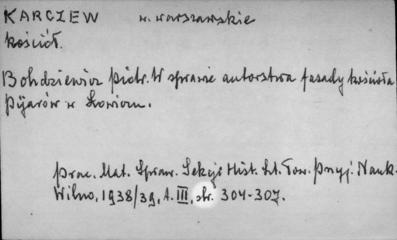 KARCZEW w. warszawskie
kościół.
Bohdziewicz Piotr. W sprawie autorstwa fasady kościoła
Pijarów w Łowiczu.
Prac. Mat. Spraw. Sekcji Hist. Szt. Tow. Przyj. Nauk.
Wilno, 1938/39, t. III, str. 304-307.